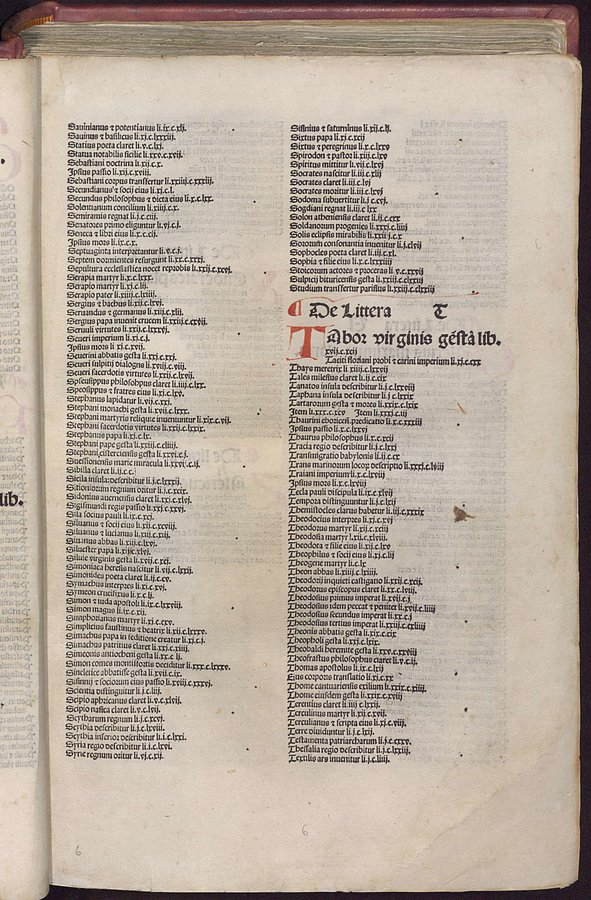 Sauinianus ⁊ potentianus li.ix.c.xlj.
Sauinus ⁊ basilicus li.xj.c.lxxxiij.
Statius poeta claret li.v.c.lxj.
Statua notabilis sicilie li.xxv.c.xvij.
Sebastiani doctrina li.xij.c.x.
Ipsius passio li.xij.c.xviij.
Sebastiani corpus transfertur li.xxiij.c.xxxiij.
Secundianus ⁊ socij eius li.xj.c.l.
Secundus philosophus ⁊ dicta eius li.x.c.lxx.
Solentianum concilium li.xiij.c.x.
Semiramis regnat li.j.c.cij.
Senatores primo eliguntur li.vj.c.j.
Seneca ⁊ libri eius li.x.c.cij.
Ipsius mors li.ix.c.x.
Septuaginta interpretantur li.v.c.j.
Septem dormientes resurgunt li.xx.c.xxxj.
Sepultura ecclesiastica nocet reprobis li.xxij.c.xxvj.
Serapia martyr li.x.c.lxxx.
Serapio martyr li.xj.c.lij.
Serapio pater li.xiij.c.lxiij.
Sergius ⁊ bachus li.xij.c.lxvj.
Seruandus ⁊ germanus li.xij.c.xlij.
Sergius papa inuenit crucem li.xxij.c.cxvij.
Seruuli virtutes li.xxij.c.lxxxvj.
Seueri imperium li.xj.c.j.
Ipsius mors li.xj.c.xvij.
Seuerini abbatis gesta li.xxj.c.xxj.
Seueri sulpitij dialogus li.xvij.c.viij.
Seueri sacerdotis virtutes li.xxij.c.lxvj.
Speusippus philosophus claret li.iiij.c.lxx.
Speosippus ⁊ fratres eius li.xj.c.lxv.
Stephanus lapidatur li.vij.c.xxj.
Stephani monachi gesta li.xvij.c.lxxx.
Stephani martyris reliquie inueniuntur li.xix.c.vij.
Stephani sacerdotis virtutes li.xxij.c.lxxix.
Stephanus papa li.xj.c.lx.
Stephani pape gesta li.xxiij.c.cliiij.
Stephani cisterciensis gesta li.xxvj.c.j.
Suessionensis marie miracula li.xxvj.c.ij.
Sibilla claret li.ij.c.c.
Sicila insula describitur li.j.c.lxxxij.
Sitioniorum regnum oritur li.j.c.xcix.
Sidonius auernensis claret li.xx.c.xlvj.
Sigismundi regis passio li.xxj.c.xxvj.
Sila socius pauli li.ix.c.xcj.
Siluanus ⁊ socij eius li.xij.c.xcviij.
Siluanus ⁊ lucianus li.xiij.c.xij.
Siluanus abbas li.xvij.c.lxvj.
Siluester papa li.xiij.c.xlvj.
Siluie virginis gesta li.xvij.c.xcj.
Simoniaca heresis nascitur li.vij.c.lxxij.
Simonides poeta claret li.ij.c.cv.
Symachus interpres li.xj.c.xvj.
Symeon crucifixus li.x.c.lj.
Simon ⁊ iuda apostoli li.ix.c.lxxviij.
Simon magus li.ix.c.xij.
Simphorianus martyr li.xj.c.cxv.
Simplicius faustinus ⁊ beatrix li.xij.c.lxxxv.
Simachus papa in seditione creatur li.xxj.c.j.
Simachus patritius claret li.xxj.c.xiij.
Simeonis antiocheni gesta li.xx.c.lj.
Simon comes montisfortis occiditur li.xxx.c.lxxxv.
Sincletice abbatisse gesta li.xvij.c.ix.
Sisinnij ⁊ sociorum eius passio li.xviij.c.xxxvj.
Scientia distinguitur li.j.c.liij.
Scipio aphricanus claret li.v.c.xlvj.
Scipio nasica claret li.v.c.lvj.
Scytharum regnum li.j.c.xcvj.
Scythia describitur li.j.c.lxviij.
Scythia inferior describitur li.j.c.lxxj.
Syria regio describitur li.j.c.lxvj.
Syrie regnum oritur li.vj.c.xij.
Sisinius ⁊ saturninus li.xij.c.lj.
Sixtus papa li.xj.c.xcij
Sixtus ⁊ peregrinus li.x.c.lxxv
Spiridon ⁊ pastor li.xiij.c.lxv
Spiritus mittitur li.vij.c.lxvj
Socrates nascitur li.iij.c.xlij
Socrates claret li.iij.c.lvj
Socrates moritur li.iij.c.lxvj
Sodoma subuertitur li.j.c.cvj.
Sogdiani regnat li.iij.c.lxx
Solon atheniensis claret li.ij.c.cxx
Soldanorum progenies li.xxxj.c.liiij
Solis eclipsis mirabilis li.xxij.c.x
Sororum consonantia inuenitur li.j.c.lvij
Sophocles poeta claret li.iij.c.xl.
Sophia ⁊ filie eius li.x.c.lxxxiiij
Stoicorum actores ⁊ proceras li.v.c.xxvij
Sulpicij bituricensis gesta li.xxiij.c.clxxij
Studium transfertur parisius li.xxiij.c.clxxiij
¶ De Littera T
Tabor virginis gesta lib.
xvij.c.xcij
Taciti floriani probi ⁊ carini imperium li.xj.c.cxx
Thays meretrix li.xiij.c.lxxvij
Tales milesius claret li.ij.c.cix
Tanatos insula describitur li.j.c.lxxviij
Taphana insula describitur li.j.c.lxxix
Tartarorum gesta ⁊ mores li.xxix.c.lxix
Item li.xxx.c.xxv Item li.xxxj.c.ij
Taurini ebroicensis predicatio li.x.c.xxxiij
Ipsius passio li.x.c.lxxvj
Thaurus philosophus li.x.c.xcij
Tracia regio describitur li.j.c.lxxj
Transmigratio babylonis li.ij.c.cx
Trans marinorum locorum descriptio li.xxxj.c.lviij
Traiani imperium li.x.c.xlviij
Ipsius mors li.x.c.lxviij
Tecla pauli discipula li.ix.c.xlvij
Tempora distinguuntur li.j.c.lxij
Themistocles clarus habetur li.iij.c.xxxix
Theodocius interpres li.xj.c.xvj
Theodorus martyr li.xij.c.xciij
Theodosia martyr li.xij.c.xlvj
Theodora ⁊ filie eius li.xij.c.lxv
Theophilus ⁊ socij eius li.xij.c.lij
Theogene martyr li.c.lx
Theon abbas li.xiiij.c.xiiij.
Theodorij inquieti castigatio li.xxij.c.xcij.
Theodorus episcopus claret li.xx.c.lvij.
Theodosius primus imperat li.xvij.c.j.
Theodosius idem peccat ⁊ penitet li.xvij.c.liiij
Theodosius secundus imperat li.xx.c.j
Theodosius tertius imperat li.xxiij.c.cxliiij
Theonis abbatis gesta li.xix.c.cix
Theopholi gesta li.xxj.c.lxix.
Theobaldi heremite gesta li.xxv.c.xxviij
Theofrastus philosophus claret li.v.c.ij.
Thomas apostolus li.ix.c.lxij
Eius corporis translatio li.xj.c.xx
Thome cantuariensis exilium li.xxix.c.xiiij.
Thome eiusdem gesta li.xxix.c.xviij
Terentius claret li.iiij.c.lxxij.
Terculinus martyr li.xij.c.xvij.
Terculianus ⁊ scripta eius li.xj.c.viij.
Terre diuiduntur li.j.c.lxij.
Testamenta patriarcharum li.j.c.cxxv.
Thessalia regio describitur li.j.c.lxxiij.
Textilis ars inuenitur li.j.c.liij.
lib.
6
6